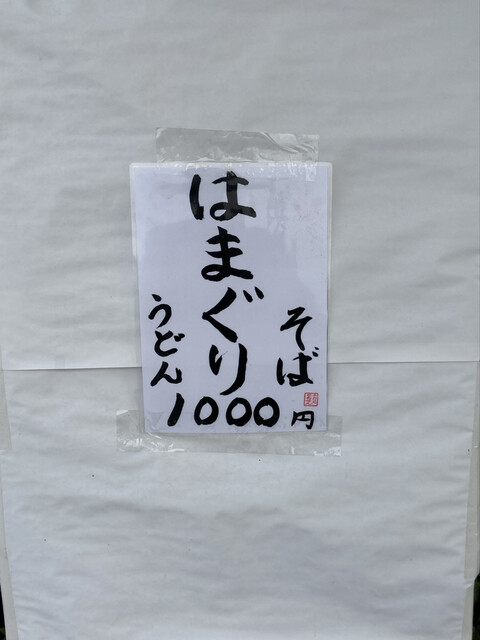 そば
はまぐり
うどん
1000円